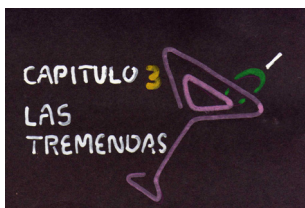 CAPITULO 3
LAS
TREMENDAS